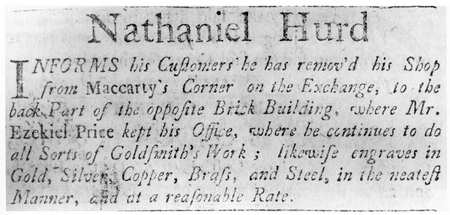 Nathaniel Hurd
INFORMS his Cuſtomers he has remov'd his Shop
from Maccarty's Corner on the Exchange, to the
back Part of the oppoſite Brick Building, where Mr.
Ezekiel Price kept his Office, where he continues to do
all Sorts of Goldſmith's Work; likewiſe engraves in
Gold, Silver, Copper, Braſs, and Steel, in the neateſt
Manner, and at a reaſonable Rate.